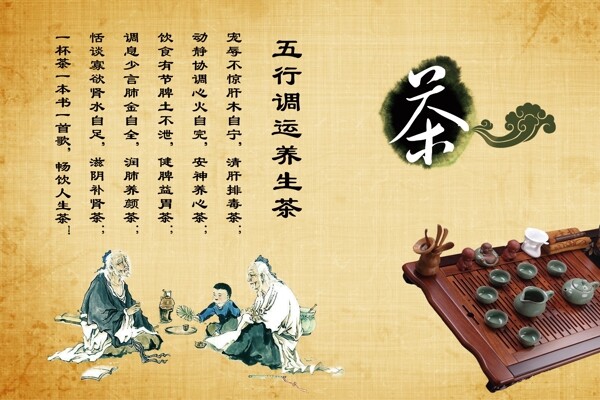 五行调运养生茶
宠辱不惊肝木自宁，清肝排毒茶；
动静协调心火自完，安神养心茶；
饮食有节脾土不泄，健脾益胃茶；
调息少言肺金自全，润肺养颜茶；
恬谈寡欲肾水自足，滋阴补肾茶；
一杯茶一本书一首歌，畅饮人生茶…
茶